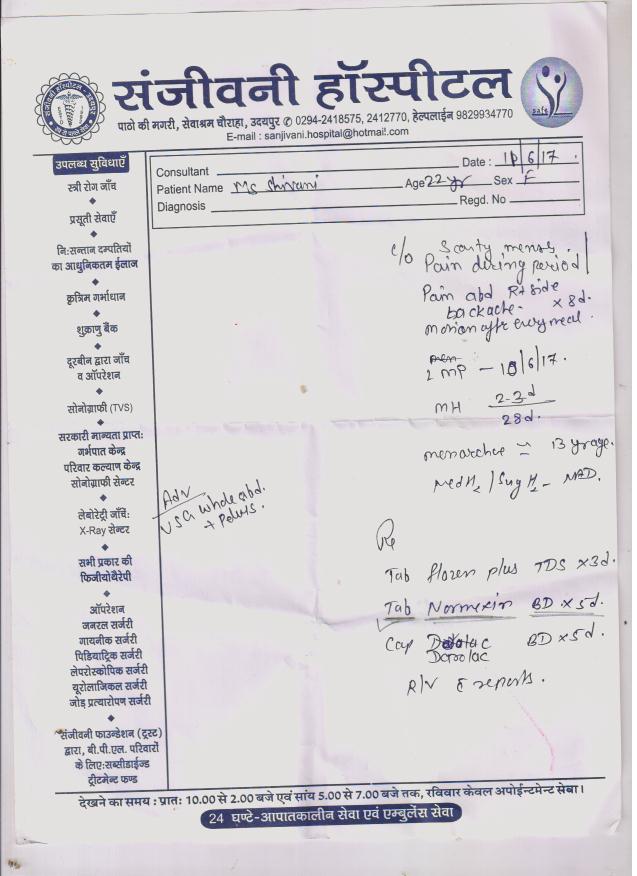 संजीवनी हॉस्पीटल
पाठो की मगरी, सेवाश्रम चौराहा, उदयपुर ✆ 0294-2418575, 2412770, हेल्पलाईन 9829934770
E-mail : sanjivani.hospital@hotmail.com
उपलब्ध सुविधाएँ
स्त्री रोग जाँच
प्रसूती सेवाएँ
नि:सन्तान दम्पतियों
का आधुनिकतम ईलाज
कृत्रिम गर्भाधान
शुक्राणु बैंक
दूरबीन द्वारा जाँच
व ऑपरेशन
सोनोग्राफी (TVS)
सरकारी मान्यता प्राप्त:
गर्भपात केन्द्र
परिवार कल्याण केन्द्र
सोनोग्राफी सेन्टर
लेबोरेट्री जाँचें:
X-Ray सेन्टर
सभी प्रकार की
फिजीयोथैरेपी
ऑपरेशन
जनरल सर्जरी
गायनीक सर्जरी
पिडियाट्रिक सर्जरी
लेपरोस्कोपिक सर्जरी
यूरोलाजिकल सर्जरी
जोड़ प्रत्यारोपण सर्जरी
संजीवनी फाउन्डेशन (ट्रस्ट)
द्वारा, बी.पी.एल. परिवारों
के लिए:सब्सीडाईज्ड
ट्रीटमेन्ट फण्ड
Consultant Date : /6/17
Patient Name Ms Shivani Age 22 yr Sex F
Diagnosis Regd. No
c/o Scanty menses.
Pain during period
Pain abd Rt side
backache. x 8d.
motion after every meal.
LMP - /6/17.
MH 2-3d
28d.
menarche = 13 yr age.
Med H/ Surg H - NAD.
Adv
USG whole abd.
+ Pelvis.
Rx
Tab floxen plus TDS x3d.
Tab Normexin BD x5d.
Cap BD x5d.
Darolac
R/V c reports.
देखने का समय : प्रात: 10.00 से 2.00 बजे एवं सांय 5.00 से 7.00 बजे तक, रविवार केवल अपोईन्टमेन्ट सेवा।
24 घण्टे-आपातकालीन सेवा एवं एम्बुलेंस सेवा